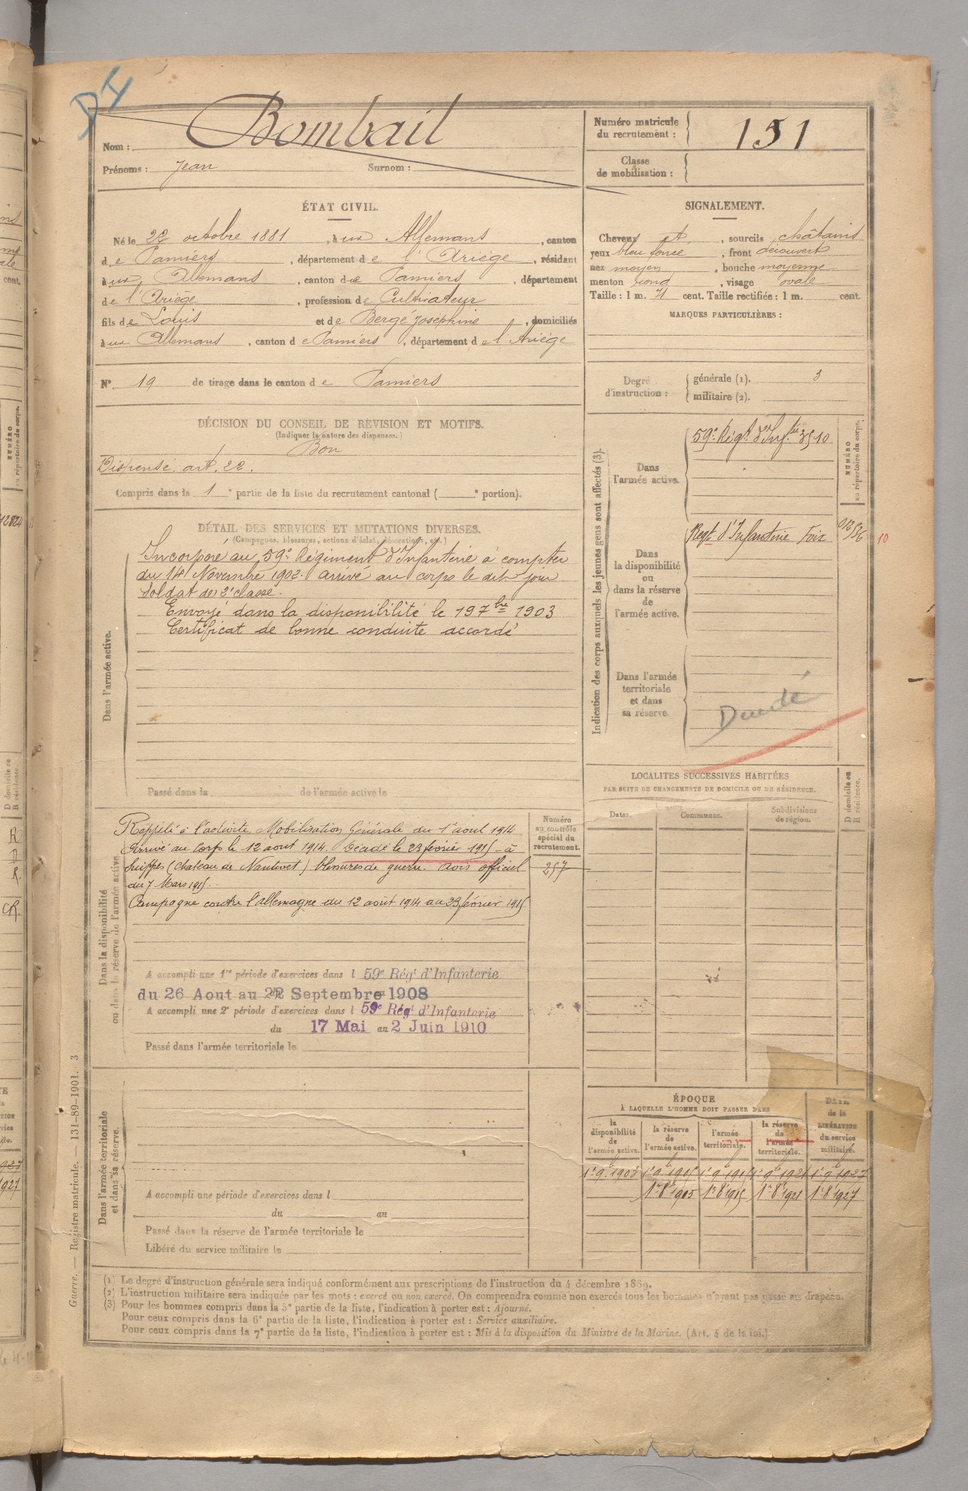 Nom : Bombail
Prénoms : Jean Surnom :
Numéro matricule du recrutement : 151
Classe de mobilisation :
ÉTAT CIVIL.
Né le 22 octobre 1881, à Allemans, canton
de Pamiers, département de l'Ariège, résidant
à Allemans, canton de Pamiers, département
de l'Ariège, profession de Cultivateur
fils de Louis et de Bergé Joséphine, domiciliés
à Allemans, canton de Pamiers, département de l'Ariège
N° 19 de tirage dans le canton de Pamiers
SIGNALEMENT.
Cheveux et, sourcils châtains
yeux bleu foncé, front découvert
nez moyen, bouche moyenne
menton rond, visage ovale
Taille : 1 m. 71 cent. Taille rectifiée : 1 m. cent.
MARQUES PARTICULIÈRES :
Degré d'instruction : générale (1). 3
militaire (2).
DÉCISION DU CONSEIL DE RÉVISION ET MOTIFS.
(Indiquer la nature des dispenses.)
Bon
Dispensé art. 22.
Compris dans la 1e partie de la liste du recrutement cantonal ( e portion).
DÉTAIL DES SERVICES ET MUTATIONS DIVERSES.
(Campagnes, blessures, actions d'éclat, décorations, etc.)
Dans l'armée active.
Incorporé au 59e Régiment d'Infanterie à compter
du 14 Novembre 1902. arrivé au corps le dit jour
soldat de 2e classe.
Envoyé dans la disponibilité le 19 7bre 1903
Certificat de bonne conduite accordé
Passé dans la de l'armée active le
Indication des corps auxquels les jeunes gens sont affectés (3).
NUMÉRO au répertoire du corps.
Dans l'armée active.
59e Régt d'Infie 3510
Dans la disponibilité ou dans la réserve de l'armée active.
Regt d'Infanterie Foix
10
Dans l'armée territoriale et dans sa réserve.
LOCALITÉS SUCCESSIVES HABITÉES
PAR SUITE DE CHANGEMENTS DE DOMICILE OU DE RÉSIDENCE.
Dates. Communes. Subdivisions de région. D domicile ou R résidence.
Dans la disponibilité ou dans la réserve de l'armée active.
Rappelé à l'activité Mobilisation Générale du 1er aout 1914
Arrivé au Corps le 12 aout 1914. Décédé le 23 février 1915 à
Suippes (Chateau de Nantivet) blessures de guerre. Avis officiel
du 7 Mars 1915.
Campagne contre l'allemagne du 12 août 1914 au 23 février 1915
Numéro au contrôle spécial du recrutement.
257
A accompli une 1re période d'exercices dans l 59e Rég. d'Infanterie
du 26 Aout au 22 Septembre 1908
A accompli une 2e période d'exercices dans l 59e Rég. d'Infanterie
du 17 Mai au 2 Juin 1910
Passé dans l'armée territoriale le
Dans l'armée territoriale et dans sa réserve.
A accompli une période d'exercices dans l
du au
Passé dans la réserve de l'armée territoriale le
Libéré du service militaire le
ÉPOQUE
À LAQUELLE L'HOMME DOIT PASSER DANS
la disponibilité de l'armée active. la réserve de l'armée active. l'armée territoriale. la réserve de l'armée territoriale. DATE de la LIBÉRATION du service militaire.
(1) Le degré d'instruction générale sera indiqué conformément aux prescriptions de l'instruction du 4 décembre 1889.
(2) L'instruction militaire sera indiquée par les mots : exercé ou non exercé. On comprendra comme non exercés tous les hommes n'ayant pas passé au drapeau.
(3) Pour les hommes compris dans la 5e partie de la liste, l'indication à porter est : Ajourné.
Pour ceux compris dans la 6e partie de la liste, l'indication à porter est : Service auxiliaire.
Pour ceux compris dans la 7e partie de la liste, l'indication à porter est : Mis à la disposition du Ministre de la Marine. (Art. 4 de la loi.)
Guerre. — Registre matricule. 131-89-1901. 3